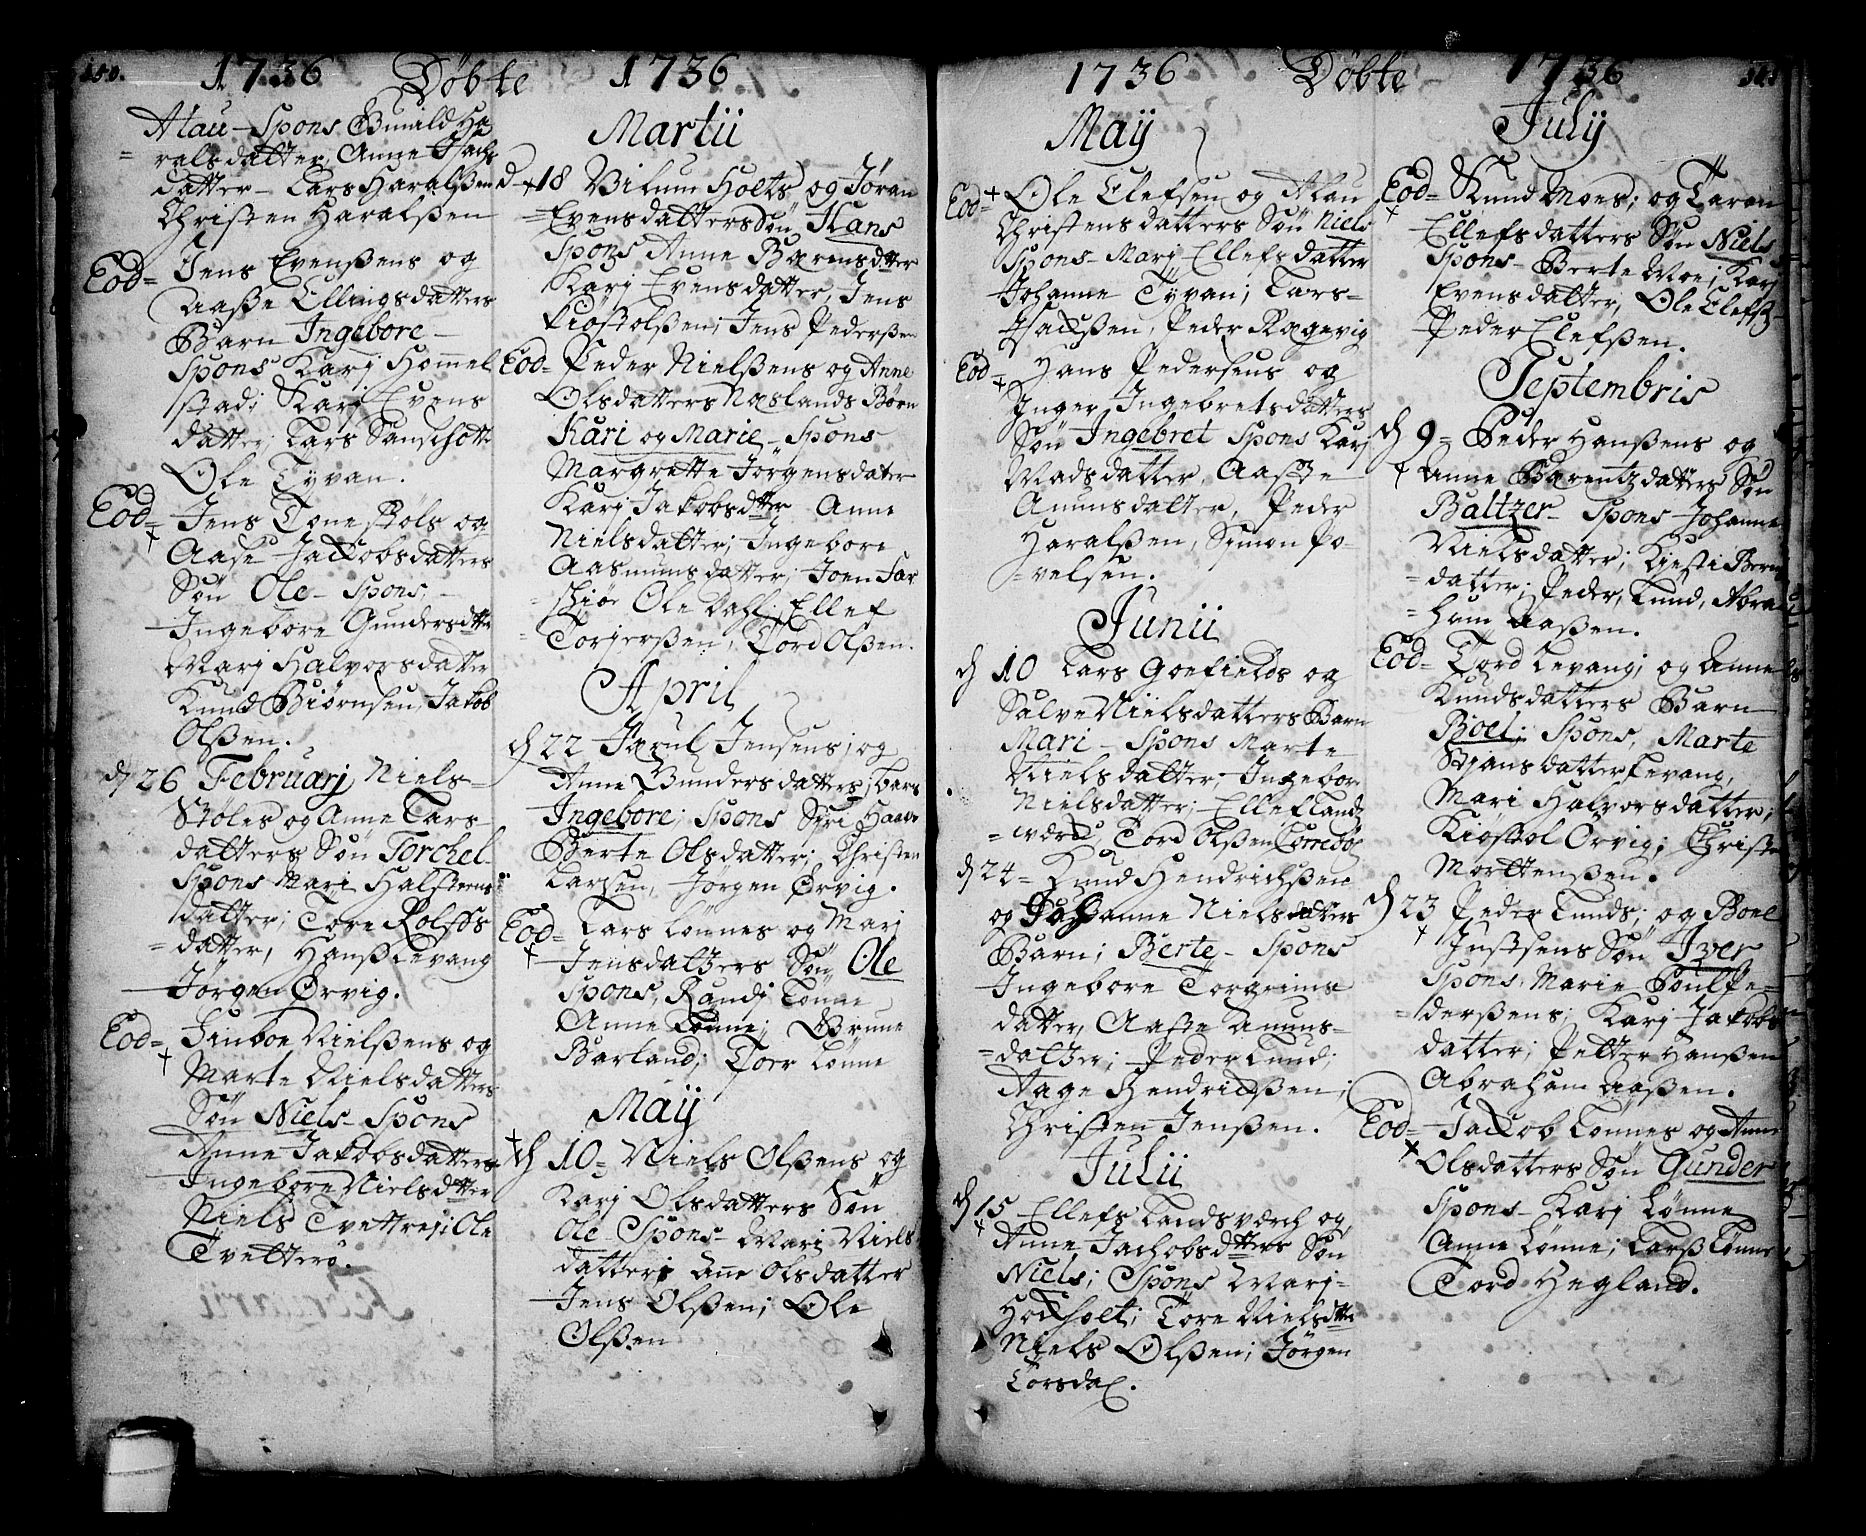 150.
1736 Døbte 1736
Alau Spons Gunild Ha
ralsdatter, Anne Isachs
datter Lars Haralßen
Christen Haralßen
Eod= Jens Evenßens og
Aaße Ellingsdatters
Barn Ingebore
Spons Karj Hommel
stad; Karj Evens
datter; Lars Samschott
Ole Tyvan.
Eod= Jens Tonestøls og
Aase Jackobsdatters
Søn Ole Spons,
Ingebore Gundersdtter
Marj Halvorsdatter
Knud Biørnsen, Jakob
Olßen.
d 26 Februarj Niels
Støles og Anne Lars
datters Søn Torchel
Spons Mari Halsteens
datter; Tore Rolffs
datter, Hanß Levang
Jørgen Ørvig.
Eod= Simboe Nielßens og
Marte Nielsdatters
Søn Niels Spons
Anne Jakobsdatters
Ingebore Nielsdtter
Niels Tvettrej; Ole
Tvetterø.
Martii
d 18 Vilum Holts og Jøran
Evensdatters Søn Hans
Spons Anne Bærensdtter
Karj Evensdatter, Jens
Kiøstolßen; Jens Pederßen
Eod= Peder Nielßens og Anne
Olsdatters Næslands Børn
Kari og Marie Spons
Margrette Jørgensdater
Karj Jakobsdtter Anne
Nielsdatter; Ingebore
Aasmunsdatter; Joen Far
skiør Ole Dahl; Ellef
Torjerßen; Tord Olßen.
April
d 22 Jærul Jensens; og
Anne Gundersdatters; barn
Ingebore; Spons Siri Haave
Berte Olsdatter; Christen
Larsen, Jørgen Ørvig.
Eod= Lars Lønnes og Marj
Jensdatters Søn Ole
Spons, Randj Lønne
Anne Lønne; Brune
Barland; Toer Lønne
Maÿ
d 10= Niels Olßens og
Karj Olsdatters Søn
Ole Spons Marj Niels
datter; Anne Olsdatter
Jens Olßen; Ole
Olßen
1736 Døbte 1736
Maÿ
Eod= Ole Elefsen og Alau
Christensdatters Søn Niels
Spons Marj Ellefsdatter
Johanne Tÿvan; Lars
Isackßen, Peder Ragevig
Eod= Hans Pedersens og
Inger Ingebretsdatters
Søn Ingebret Spons Karj
Madsdatter, Aaße
Amunsdatter, Peder
Haralßen, Symon Po
velsen.
Junii
d 10 Lars Goefields og
Salve Nielsdatters Barn
Mari Spons Marte
Nielsdatter; Ingebor
Nielsdatter; Ellef Landz
værck, Tord Olßen
d 24= Knud Hendrichßen
og Johanne Nielsdatters
Barn; Berte Spons
Ingebore Torgrims
datter, Aaße Amuns
datter; Peder Lund;
Aage Hendricksen;
Christen Jenßen.
Julii
d 15 Ellefs Landsværck og
Anne Jachobsdtters Søn
Niels; Spons Marj
Hockholt; Tore Nielsdtter
Niels Olßen; Jørgen
Torsdal.
Julÿ
Eod= Knud Moes; og Taran
Ellefsdatters Søn Niels
Spons Berte Moe; Karj
Evensdatter, Ole Elefß
Peder Elefßen.
Septembris
d 9= Peder Hanßens og
Anne Barentzdatters Søn
Baltzer Spons Johanne
Nielsdatter; Kiesti Bern
datter; Peder, Lund, Abra
ham Aaßen.
Eod= Tord Levang; og Anne
Knudsdatters Barn
Boel; Spons, Marte
Levang,
Mari Halvorsdatter;
Kiøstol Ørvig; Christen
Morttenßen.
d 23 Peder Lunds; og Boel
Justsens Søn Iver
Spons; Marie Poul Pe
derßens; Karj Jakobs
datter; Petter Hanßen
Abraham Aaßen.
Eod= Jackob Lønnes og Anne
Olsdatters Søn Gunder
Spons Karj Lønne
Anne Lønne; Larß Lønne
Tord Hegland.